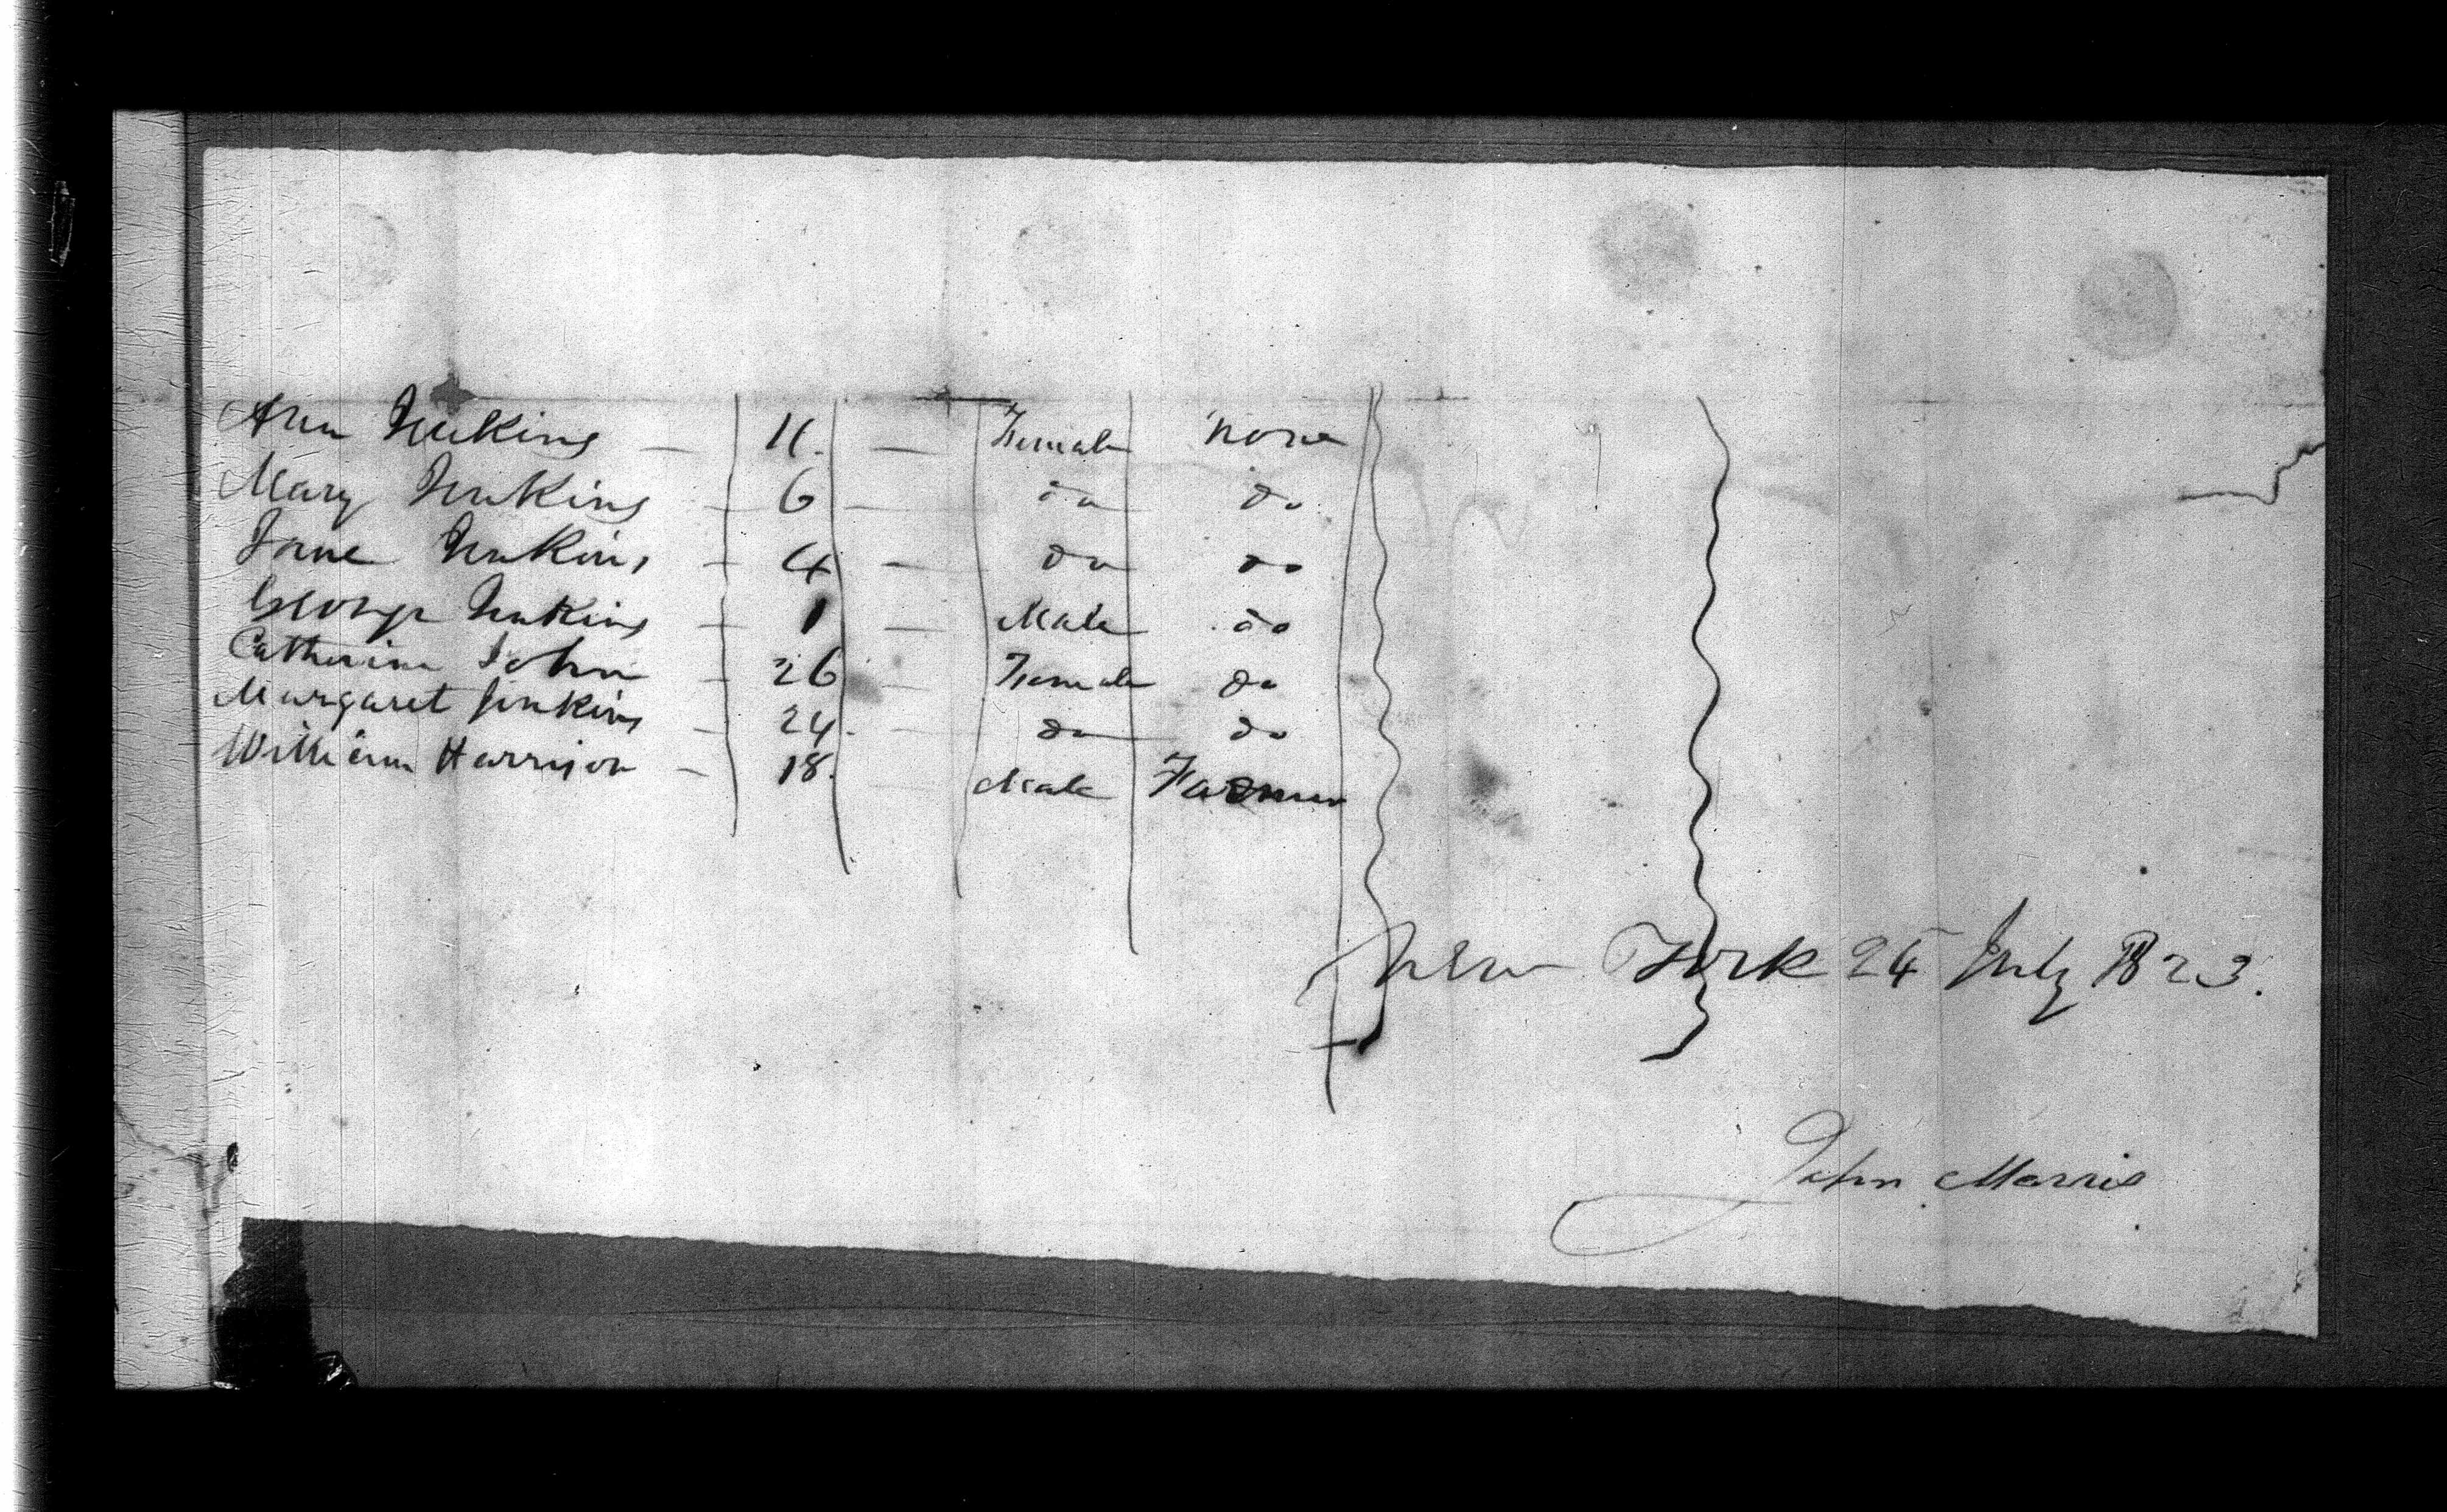 Ann Jenkins — 11. — Female none
Mary Jenkins — 6 — do do
Jane Jenkins — 4 — do do
George Jenkins — 1 — Male do
Catherine John — 26 — Female do
Margaret Jenkins — 24. — do do
William Harrison — 18. Male Farmer
New York 24 July 1823.
John Morris